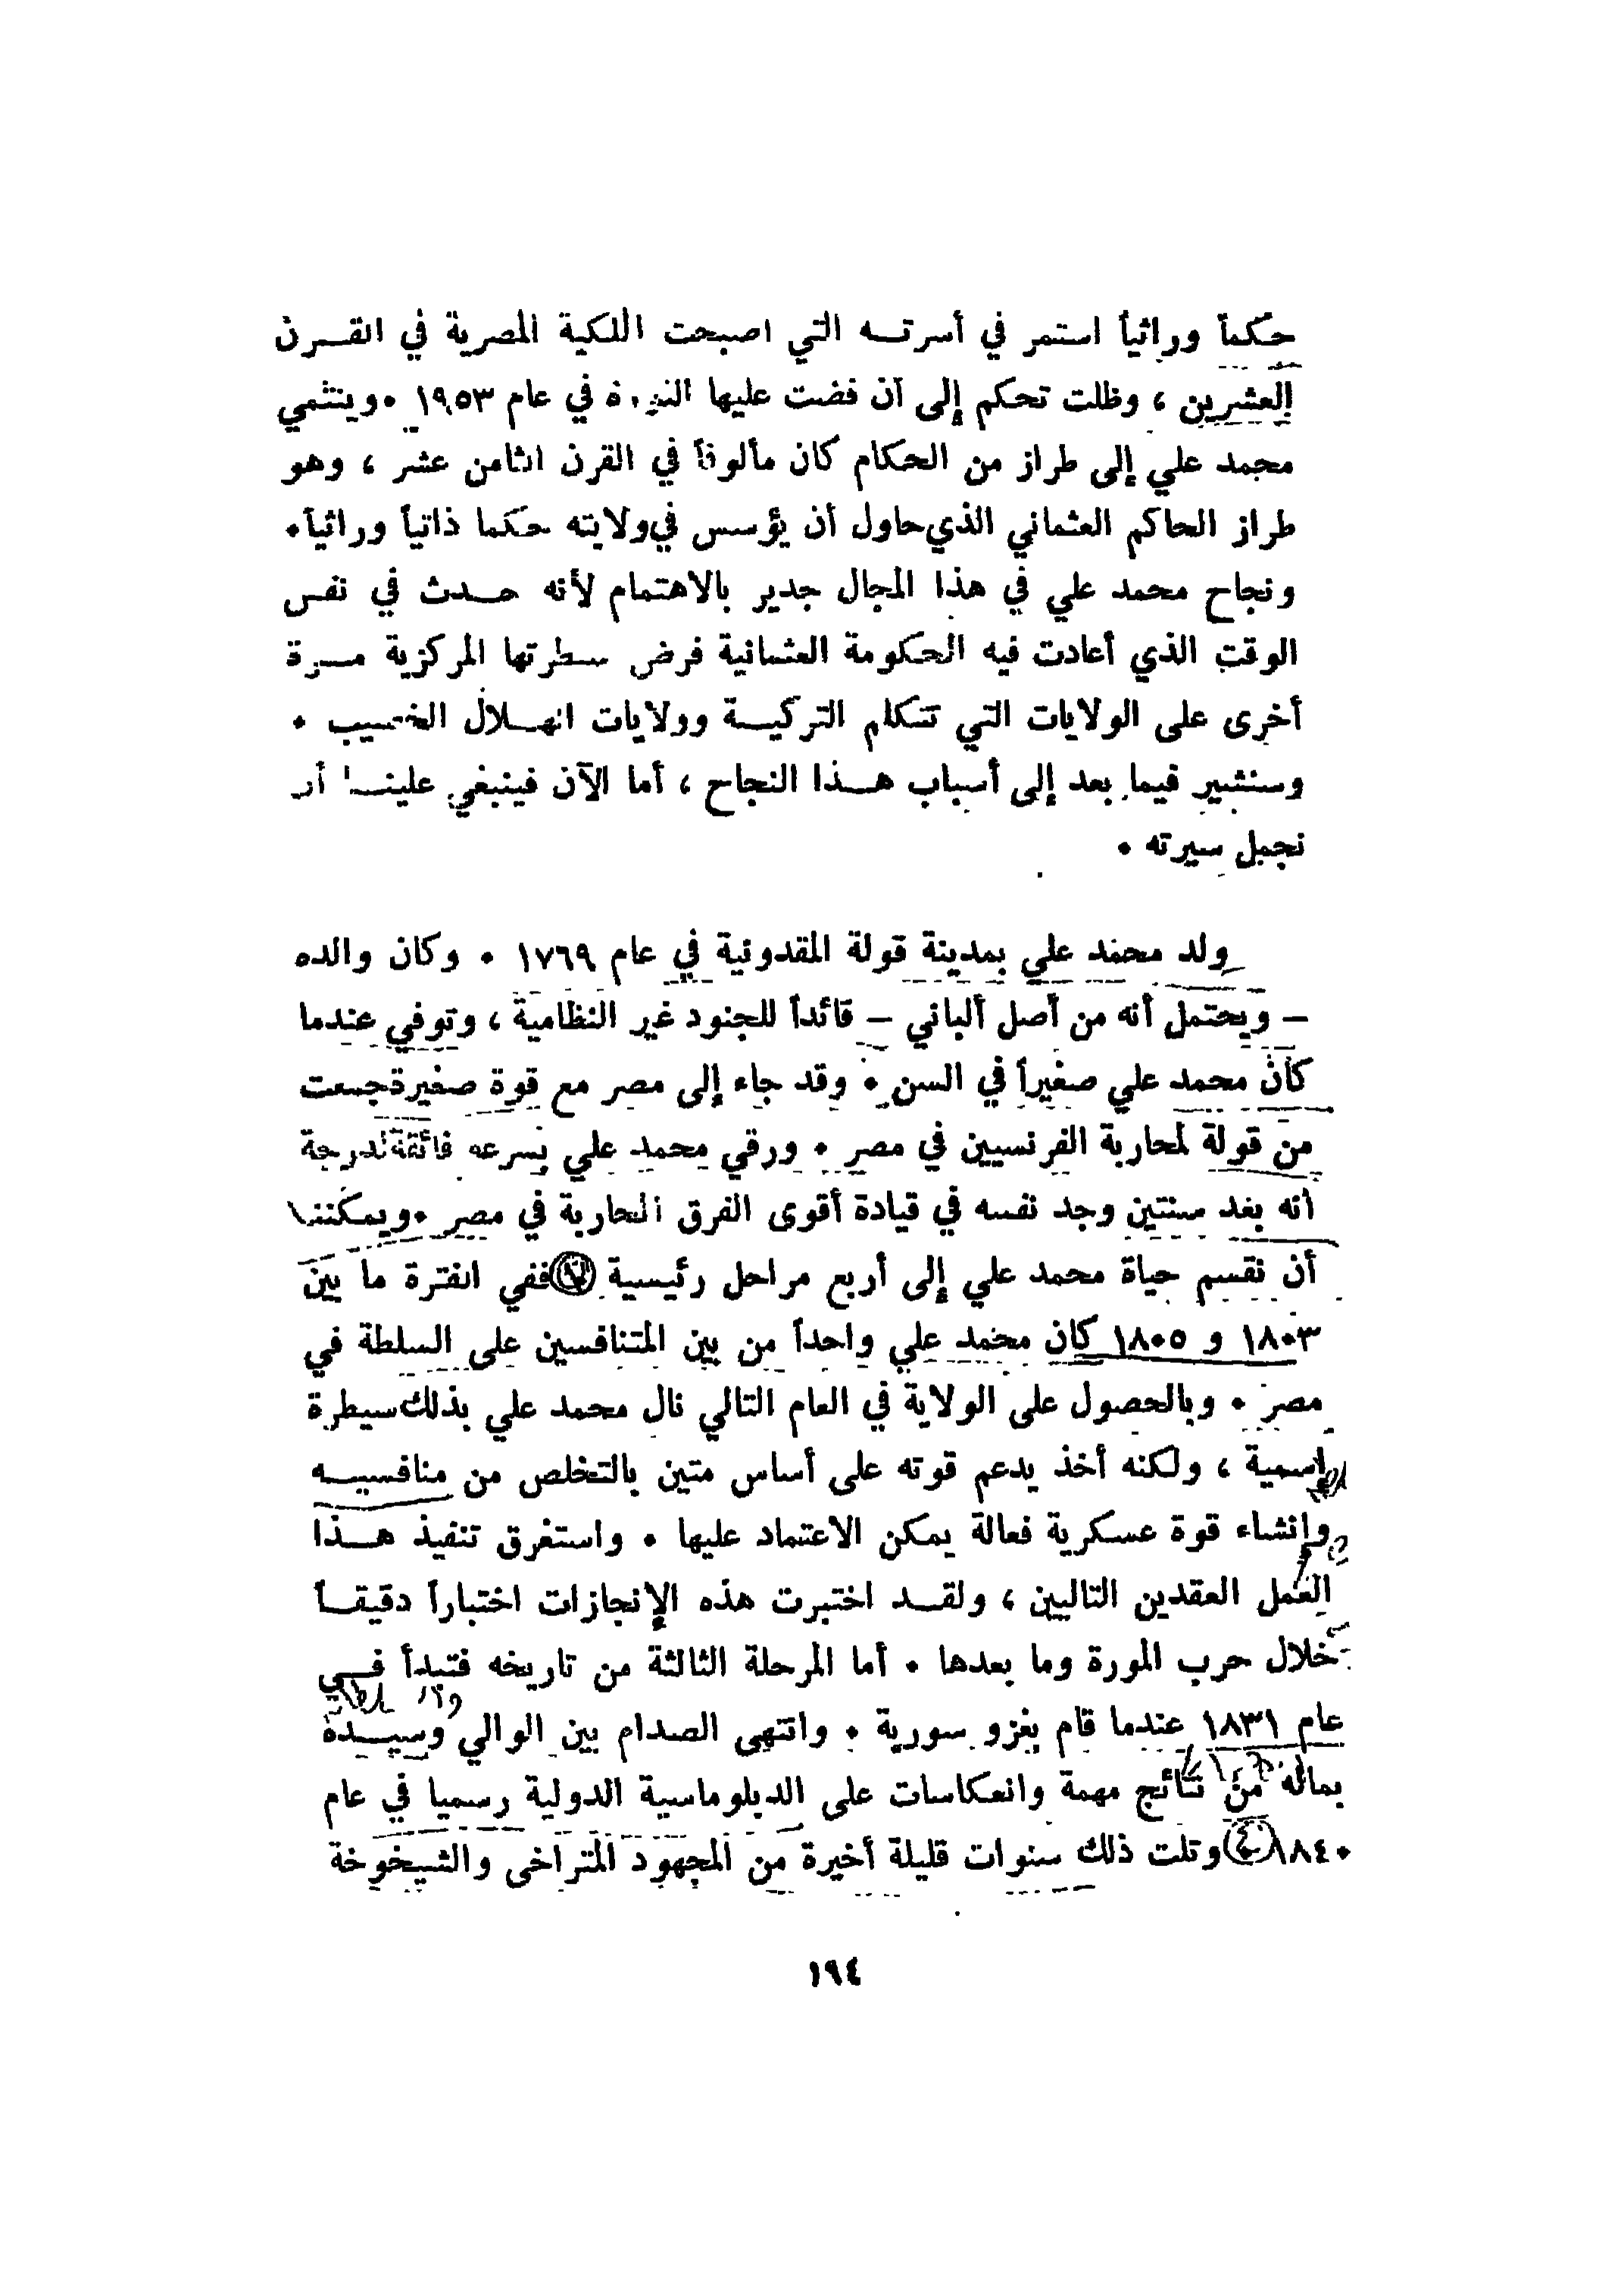 حكماً وراثياً استمر في أسرتــه التي اصبحت الملكية المصرية في القــرن
العشرين ، وظلت تحكم إلى أن قضت عليها الثورة في عام ١٩٥٣ • وينتمي
محمد علي إلى طراز من الحكام كان مألوفاً في القرن الثامن عشر ، وهو
طراز الحاكم العثماني الذي حاول أن يؤسس في ولايته حكما ذاتياً وراثياً •
ونجاح محمد علي في هذا المجال جدير بالاهتمام لأنه حــدث في نفس
الوقت الذي أعادت فيه الحكومة العثمانية فرض سطرتها المركزية مــرة
أخرى على الولايات التي تتكلم التركيــة وولايات الهــلال الخصيب •
وسنشير فيما بعد إلى أسباب هــذا النجاح ، أما الآن فينبغي علينــا أن
نجمل سيرته •
ولد محمد علي بمدينة قولة المقدونية في عام ١٧٦٩ • وكان والده
– ويحتمل أنه من أصل ألباني – قائداً للجنود غير النظامية ، وتوفي عندما
كان محمد علي صغيراً في السن • وقد جاء إلى مصر مع قوة صغيرة جمعت
من قولة لمحاربة الفرنسيين في مصر • ورقي محمد علي بسرعه فائقة لدرجة
أنه بعد سنتين وجد نفسه في قيادة أقوى الفرق المحاربة في مصر • ويمكننا
أن نقسم حياة محمد علي إلى أربع مراحل رئيسية ففي الفترة ما بين
١٨٠٣ و ١٨٠٥ كان محمد علي واحداً من بين المتنافسين على السلطة في
مصر • وبالحصول على الولاية في العام التالي نال محمد علي بذلك سيطرة
إسمية ، ولكنه أخذ يدعم قوته على أساس متين بالتخلص من منافسيــه
وإنشاء قوة عسكرية فعالة يمكن الاعتماد عليها • واستغرق تنفيذ هــذا
العمل العقدين التاليين ، ولقــد اختبرت هذه الإنجازات اختباراً دقيقــاً
خلال حرب المورة وما بعدها • أما المرحلة الثالثة من تاريخه فتبدأ فــي
عام ١٨٣١ عندما قام بغزو سورية • وانتهى الصدام بين الوالي وسيــده
بماله من نتائج مهمة وانعكاسات على الدبلوماسية الدولية رسميا في عام
١٨٤٠ وتلت ذلك سنوات قليلة أخيرة من المجهود المتراخى والشيخوخة
١٩٤